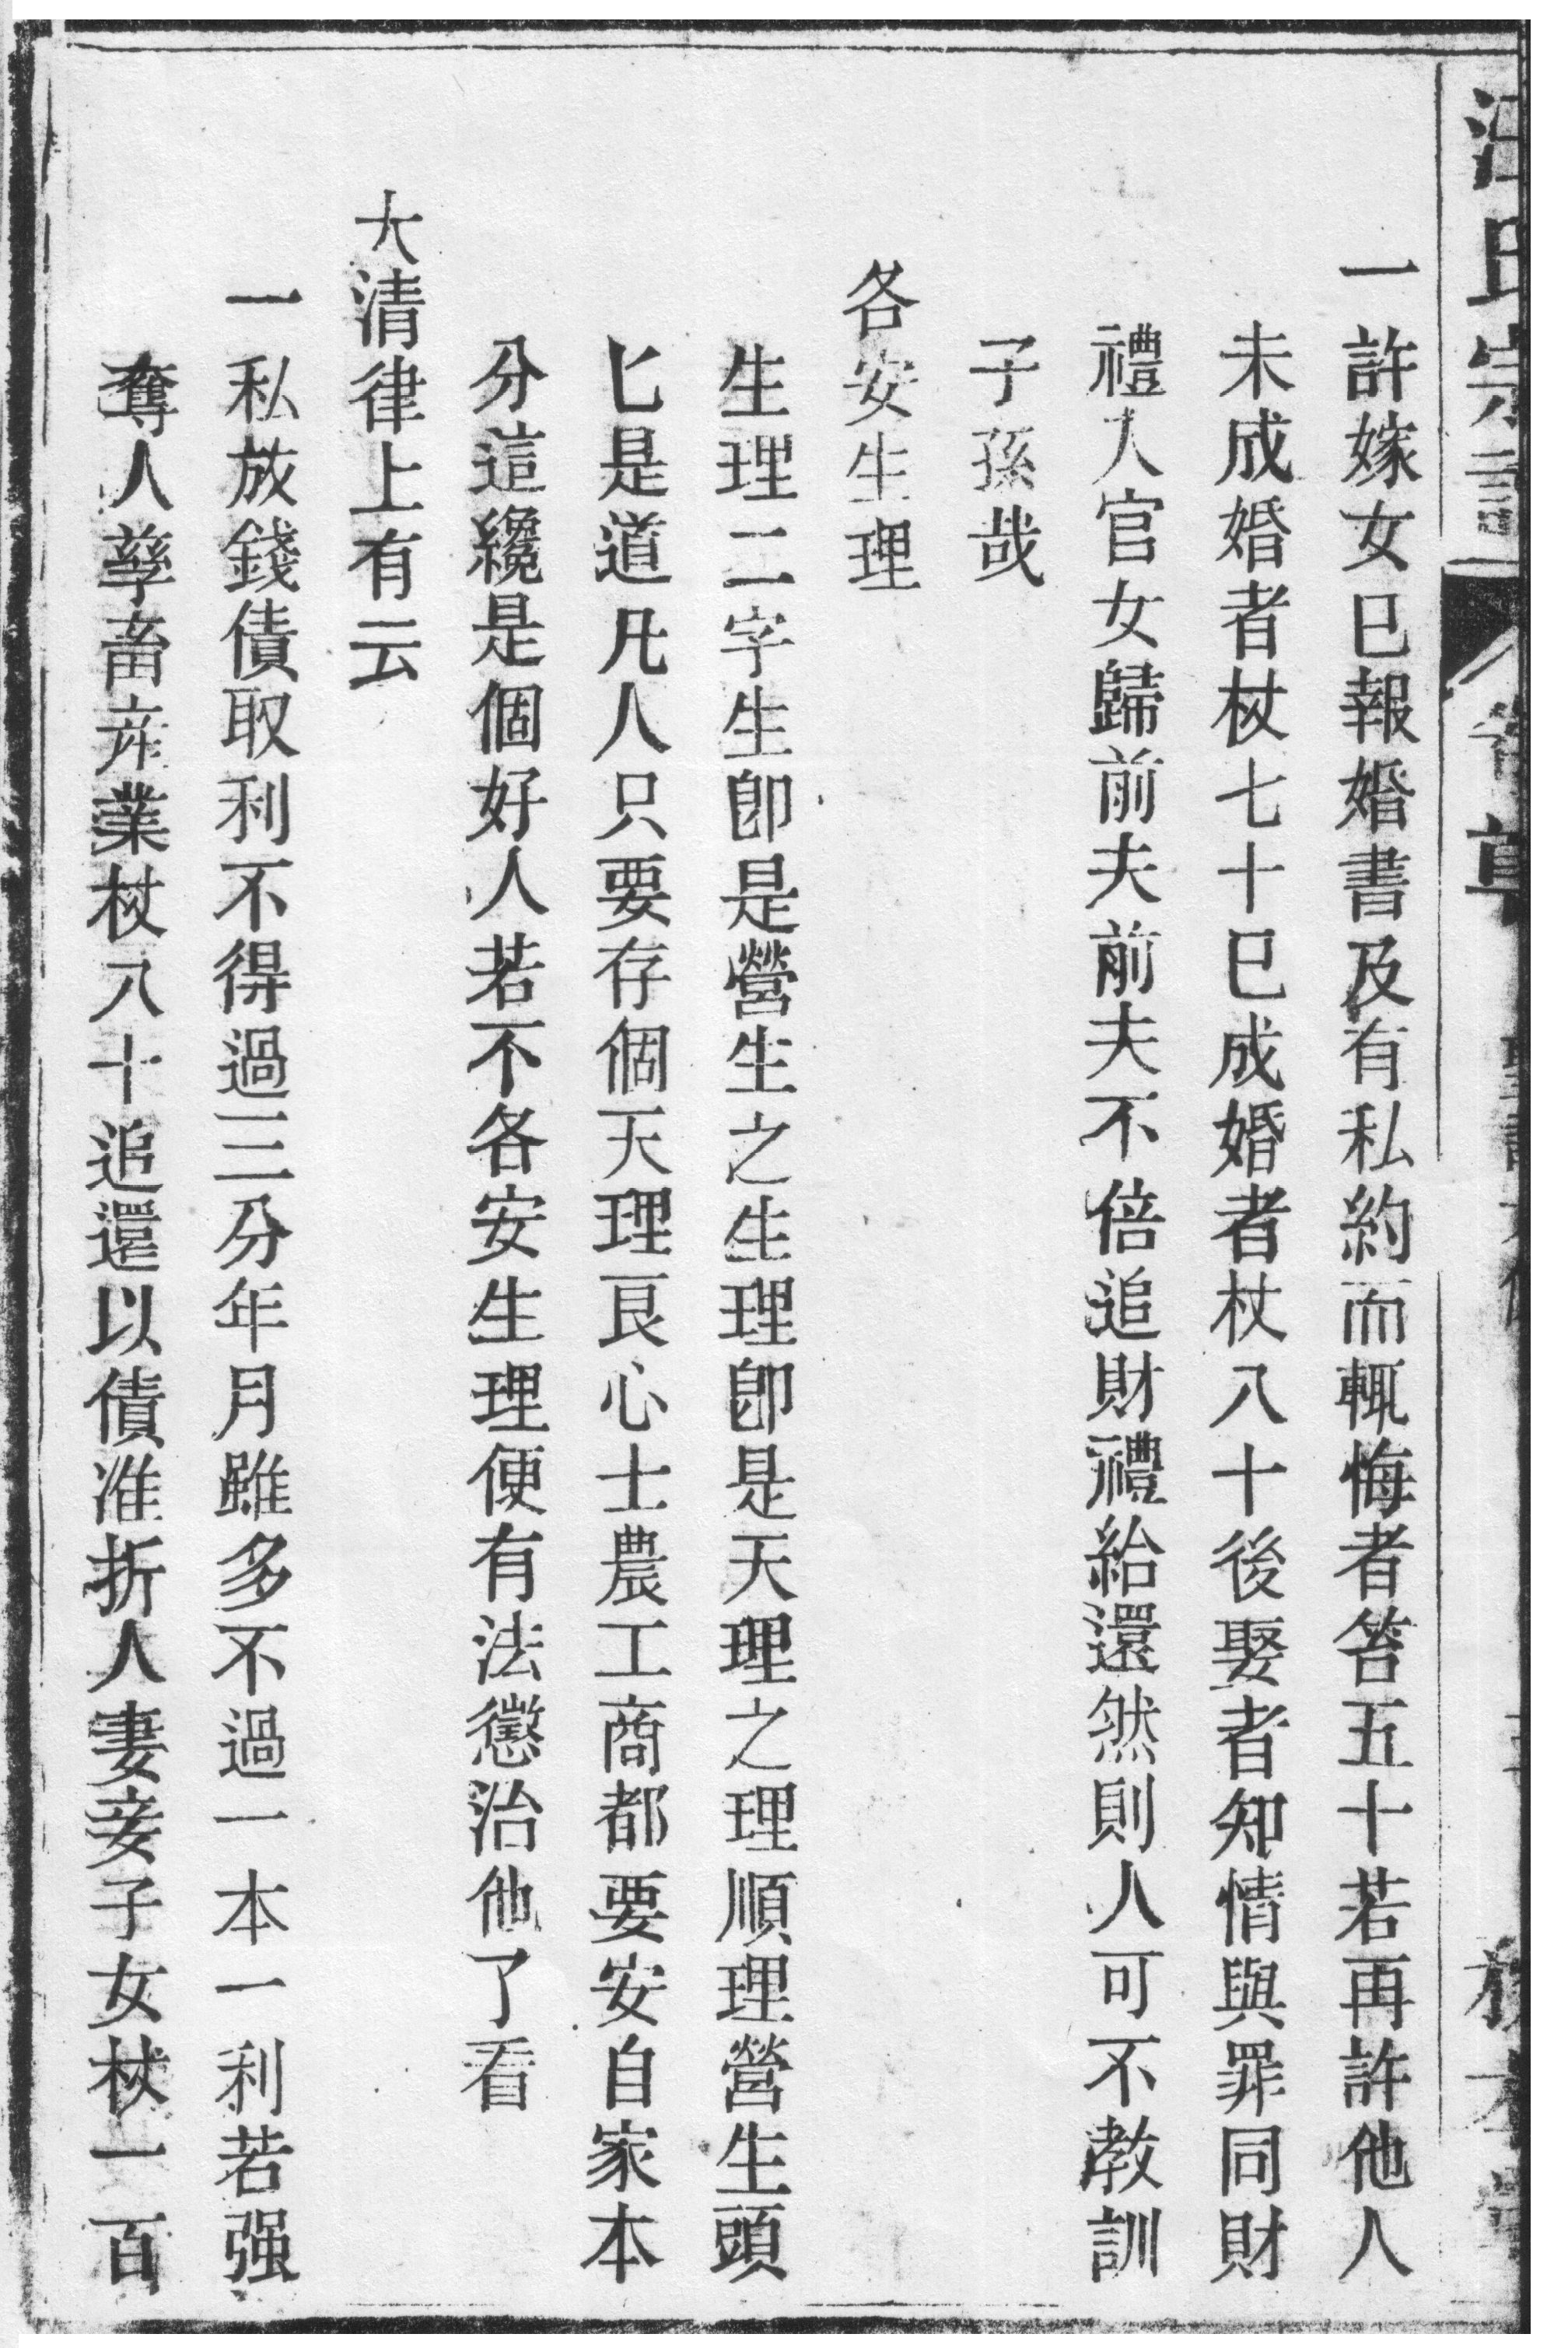 汪氏宗譜
一許嫁女巳報婚書及有私約而輒悔者笞五十若再許他人
未成婚者杖七十巳成婚者杖八十後娶者知情與罪同財
禮入官女歸前夫前夫不倍追財禮給還然則人可不教訓
子孫哉
各安生理
生理二字生卽是營生之生理卽是天理之理順理營生頭
匕是道凡人只要存個天理良心士農工商都要安自家本
分這纔是個好人若不各安生理便有法懲治他了看
大清律上有云
一私放錢債取利不得過三分年月雖多不過一本一利若强
奪人孳畜產業杖八十追還以債准折人妻妾子女杖一百